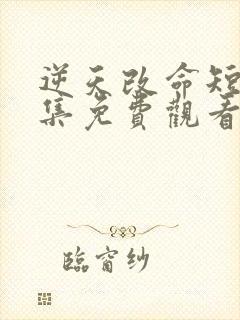 逆天改命短
集免費觀看
臨窗紗